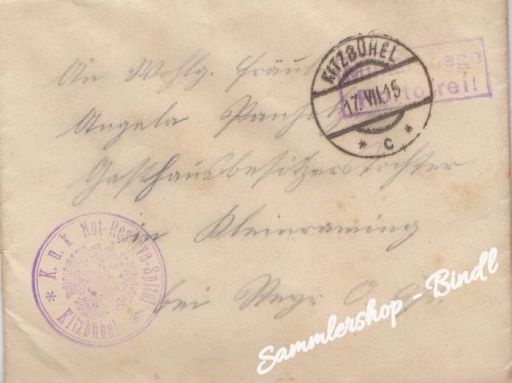 An Wohlg. Fräul
Angela
Gasthausbesitzerstochter
in Kleinraming
bei Steyr O. Ö.
KITZBÜHEL
17.VII.15
* C *
Portofrei!
* K. u. k. Not-Reserve-Spital *
Kitzbühel
Sammlershop - Bindl